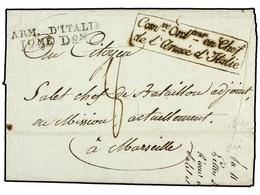 ARM. D'ITALIE
1OME Don
Com.re Ord.eur en Chef
de l'Armée d'Italie
Au Citoyen
Salet chef de Bataillon adjoint,
en Mission actuellement.
à Marseille